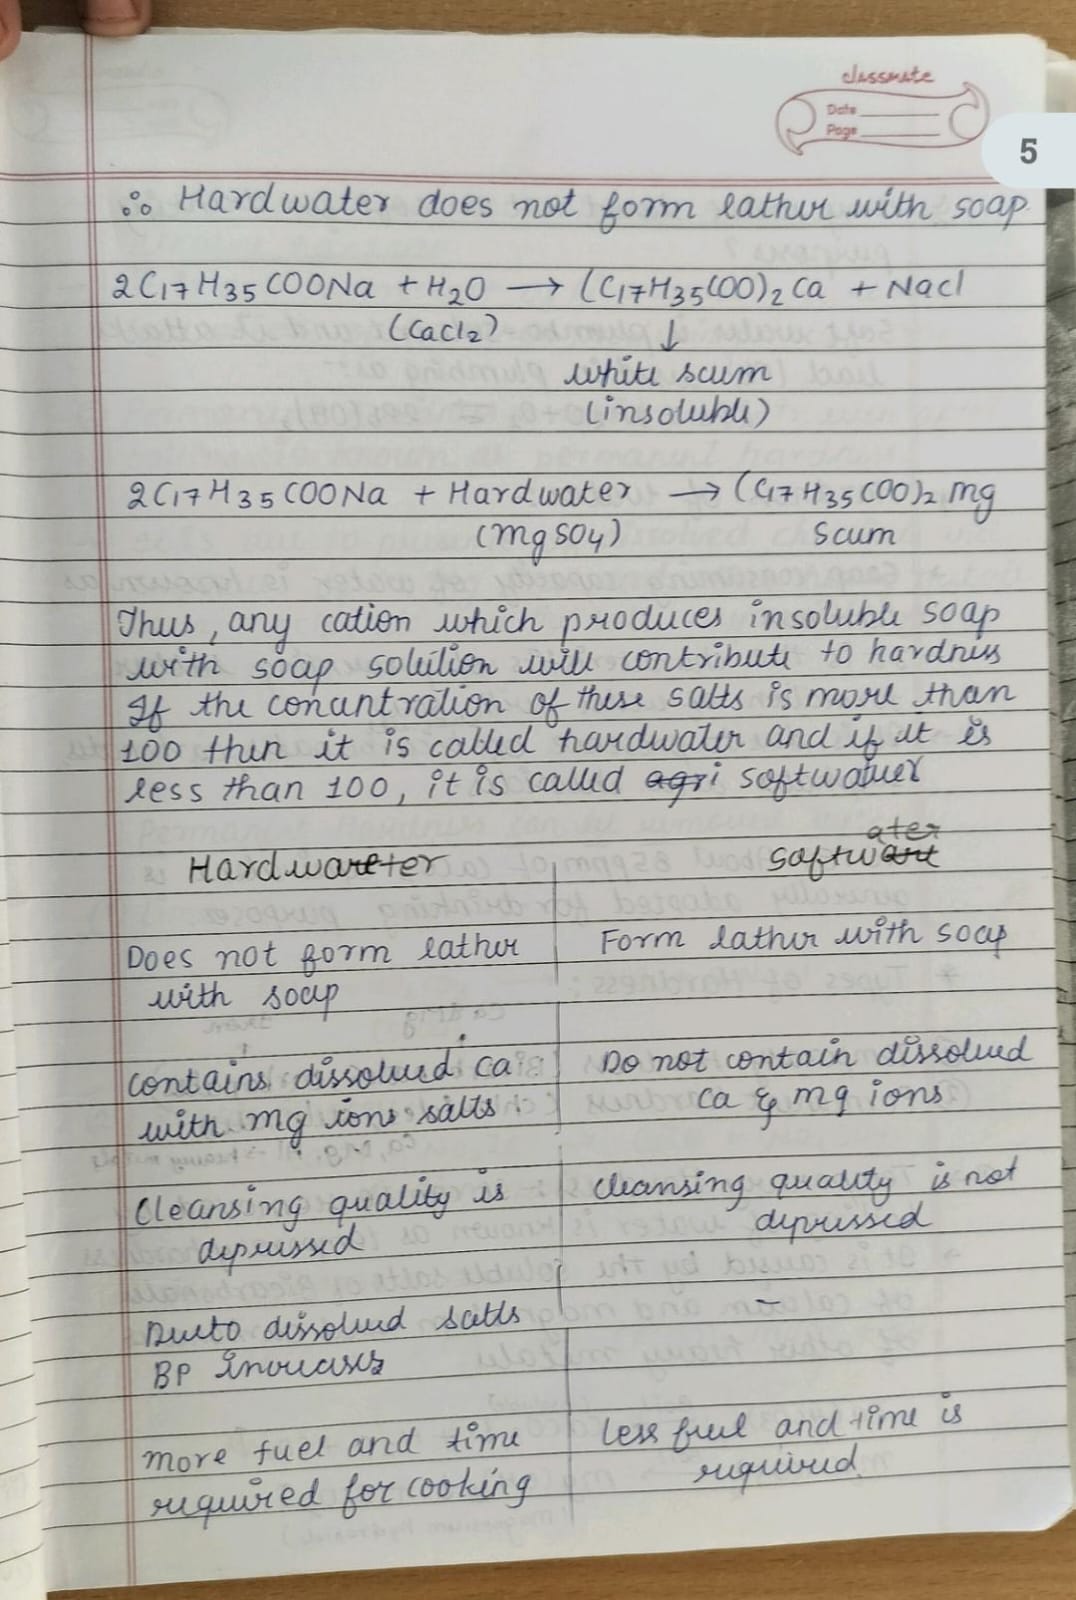 classmate
Date
Page
5
∴ Hardwater does not form lather with soap.
2C17H35COONa + H2O → (C17H35COO)2 Ca + Nacl
(CaCl2) ↓
white scum
(insoluble)
2C17H35COONa + Hardwater → (C17H35COO)2 mg
(mgSO4) Scum
Thus, any cation which produces insoluble soap
with soap solution will contribute to hardness
If the concentration of these salts is more than
100 then it is called hardwater and if it is
less than 100, it is called agri softwater
Hardwareter softwart ater
Does not form lather Form lather with soap
with soap
contains dissolved ca Do not contain dissolved
with mg ions salts Ca & mg ions
Cleansing quality is Cleansing quality is not
depressed depressed
Dueto dissolved salts -
BP increases
more fuel and time less fuel and time is
required for cooking required